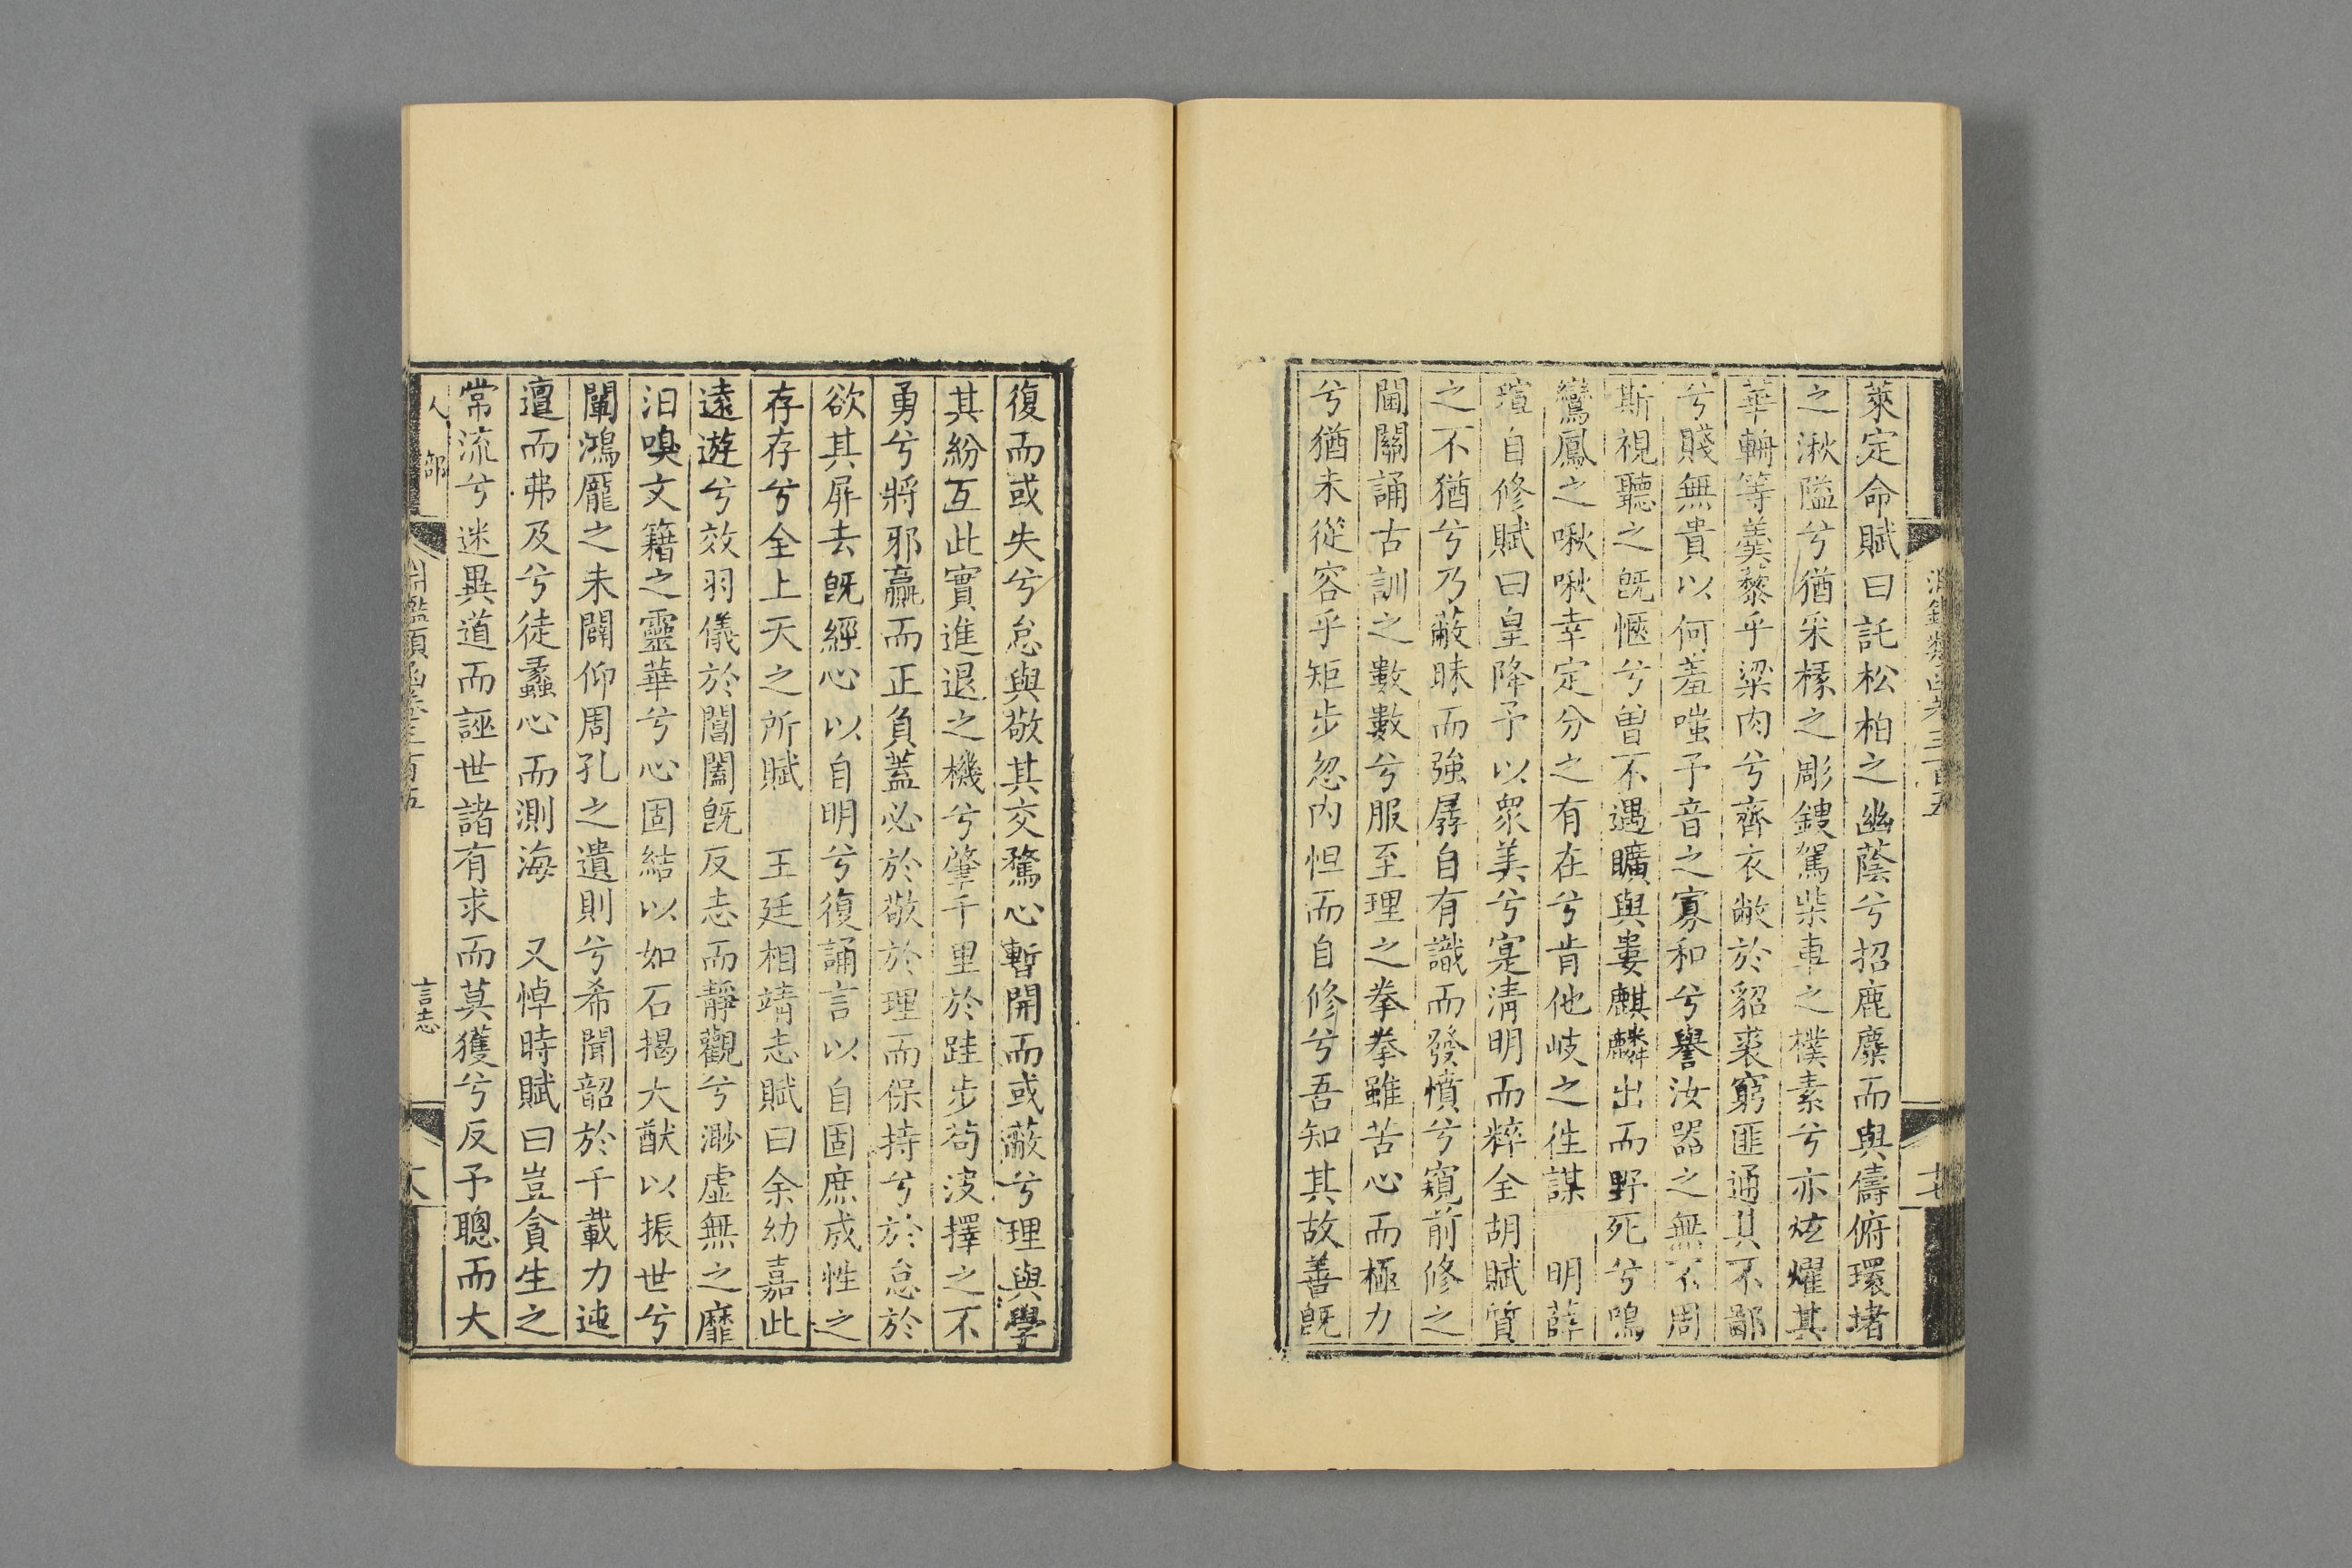 淵鑑類函卷三百五
十七
萊定命賦曰託松柏之幽蔭兮招鹿麋而與儔俯環堵
之湫隘兮猶采椽之彫鏤駕柴車之樸素兮亦炫燿其
華輈等羹藜乎粱肉兮齊衣敝於貂裘窮匪通其不鄙
兮賤無貴以何羞嗤予音之寡和兮譽汝器之無不周
斯視聽之旣愜兮曽不遇曠與婁麒麟出而野死兮鳴
鸞鳳之啾啾幸定分之有在兮肯他岐之徃謀　明薛
瑄自修賦曰皇降予以衆美兮寔淸明而粹全胡賦質
之不猶兮乃蔽昧而強孱自有識而發憤兮窺前修之
閫關誦古訓之數數兮服至理之拳拳雖苦心而極力
兮猶未從容乎矩步忽內怛而自修兮吾知其故善旣
復而或失兮怠與敬其交騖心暫開而或蔽兮理與學
其紛互此實進退之機兮肇千里於跬步茍沒擇之不
勇兮將邪贏而正負蓋必於敬於理而保持兮於怠於
欲其屛去旣經心以自明兮復誦言以自固庶成性之
存存兮全上天之所賦　王廷相靖志賦曰余幼嘉此
遠遊兮效羽儀於閶闔旣反志而靜觀兮渺虛無之靡
汩嗅文籍之靈華兮心固結以如石揭大猷以振世兮
闡鴻厖之未闢仰周孔之遺則兮希聞韶於千載力迍
邅而弗及兮徒蠡心而測海　又悼時賦曰豈貪生之
常流兮迷異道而誣世諸有求而莫獲兮反予聰而大
人部
淵鑑類函卷三百五
言志